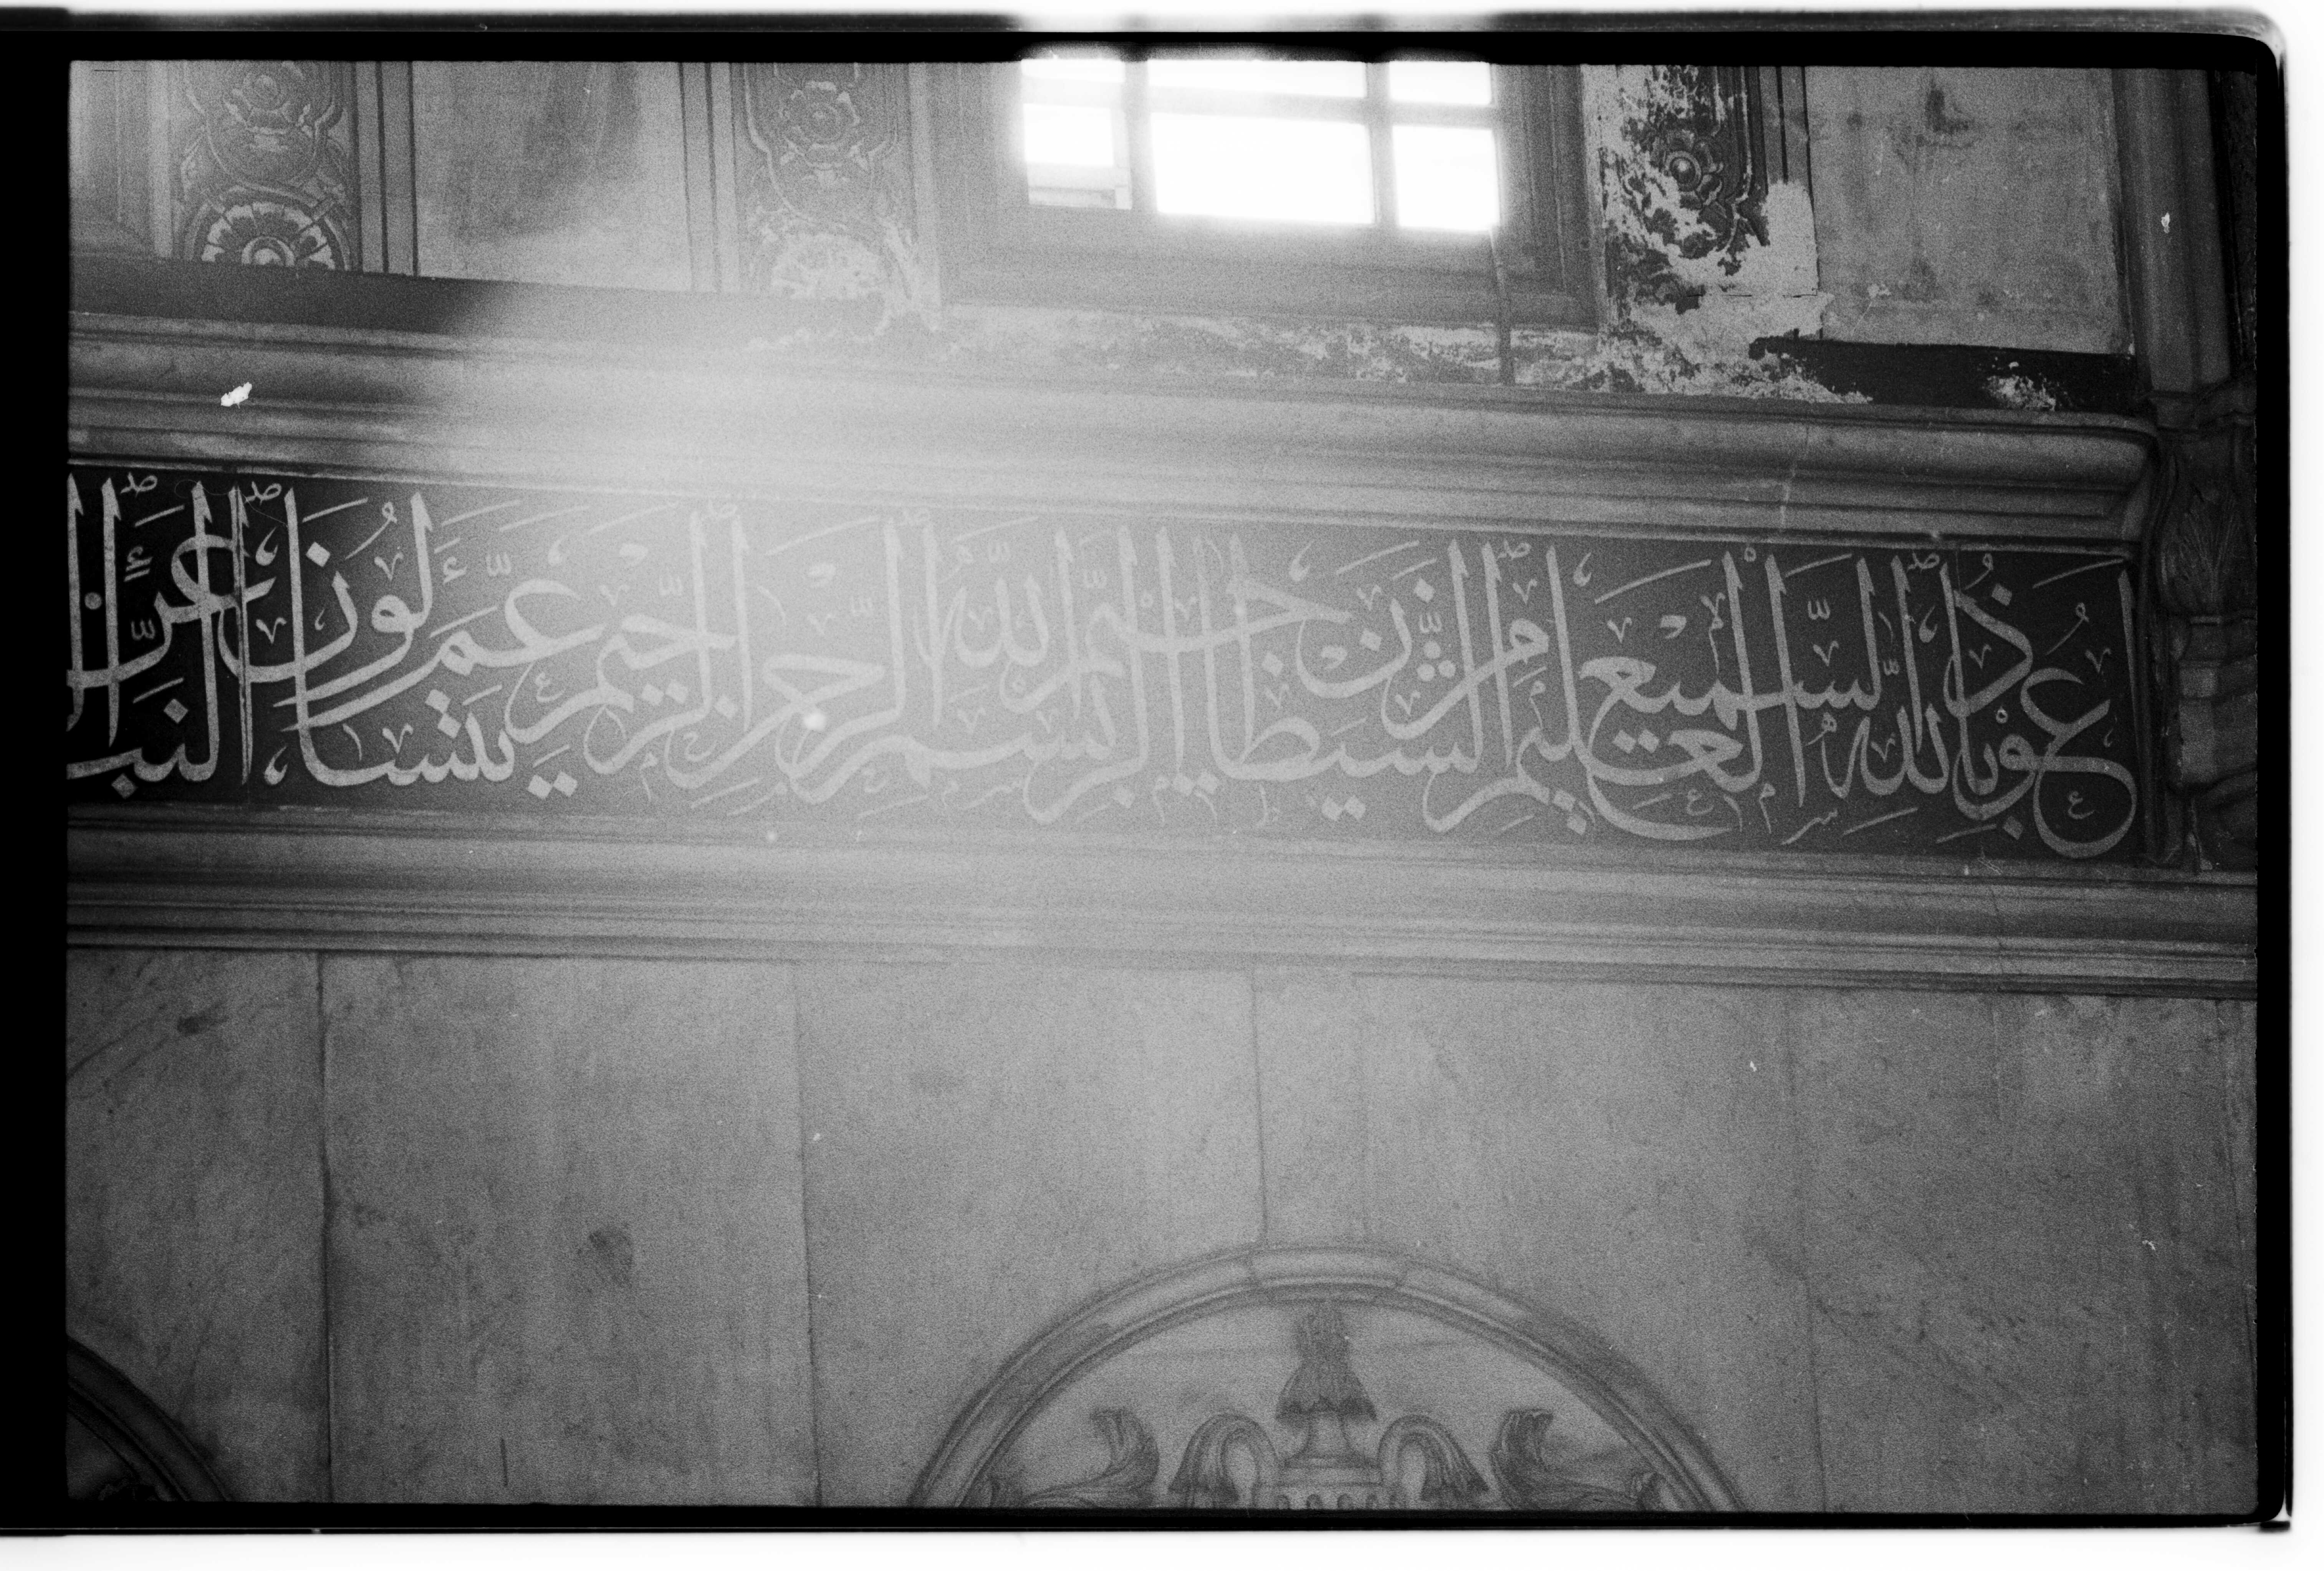 أعوذ بالله السميع العليم من الشيطان الرجيم بسم الله الرحمن الرحيم عم يتسائلون عن النبا